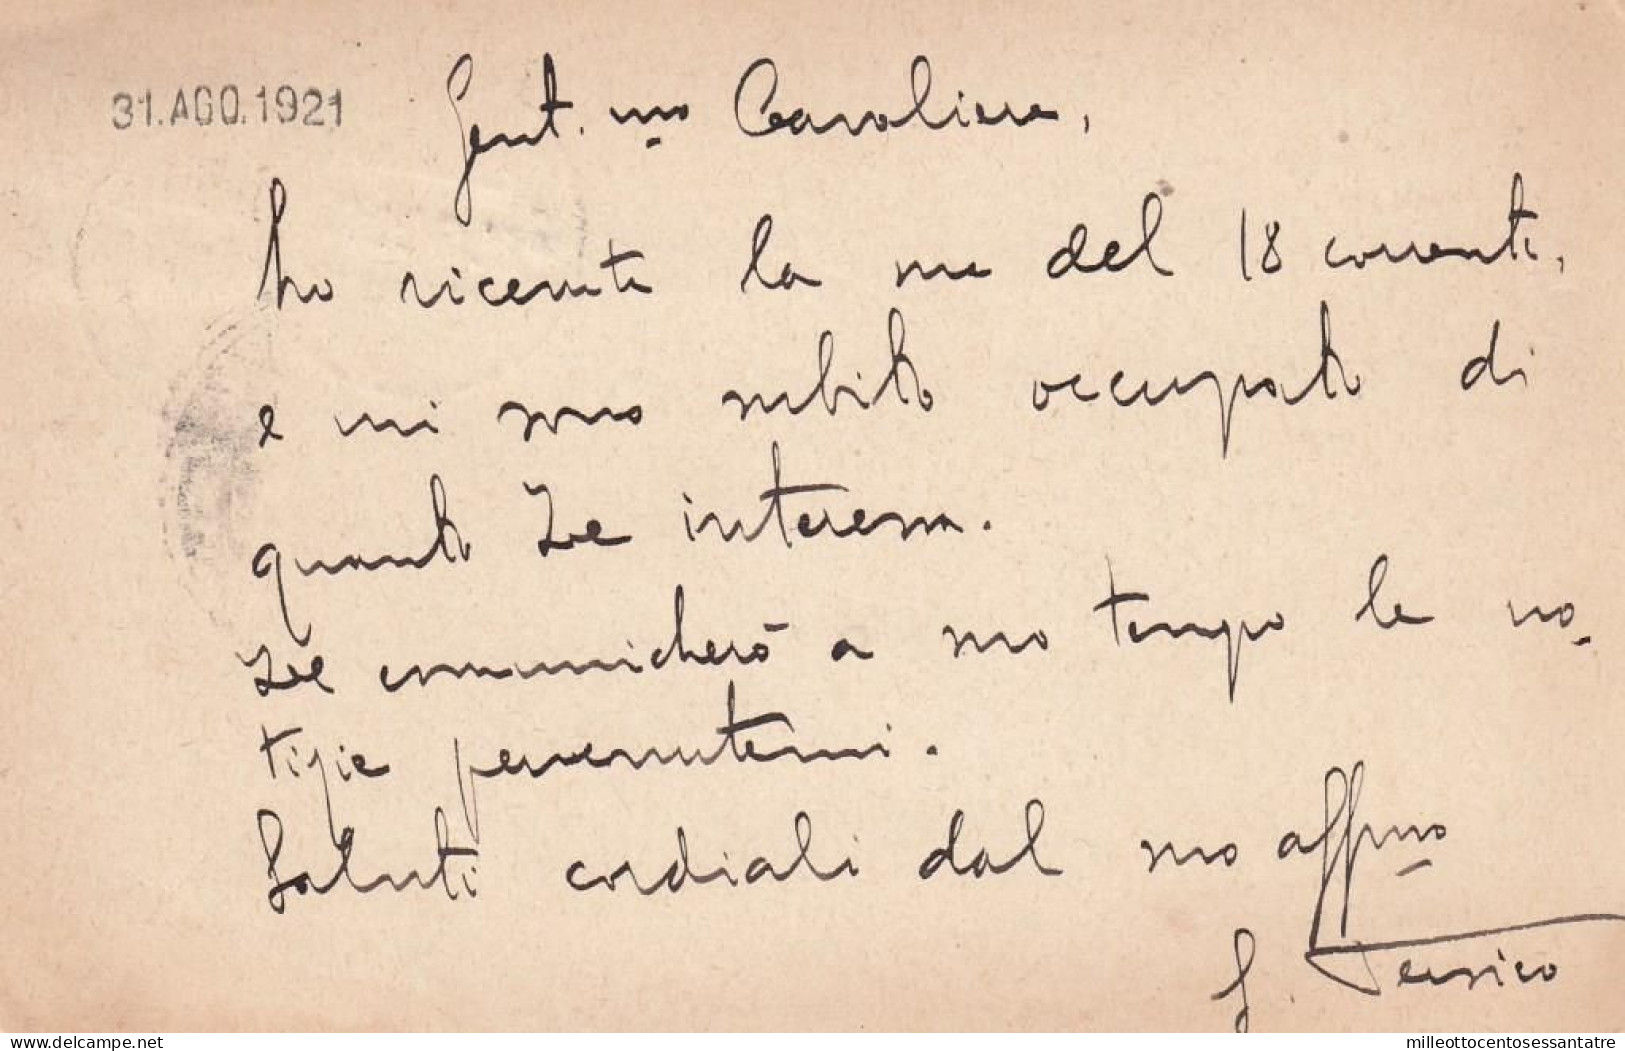 31.AGO.1921
Gent.mo Cavaliere,
ho ricevuto la sua del 18 corrente,
e mi sono subito occupato di
quanto Le interessa.
Le comunicherò a suo tempo le no-
tizie pervenutemi.
Saluti cordiali dal suo affmo
G. Persico
delcampe.net
milleottocentosessantatre